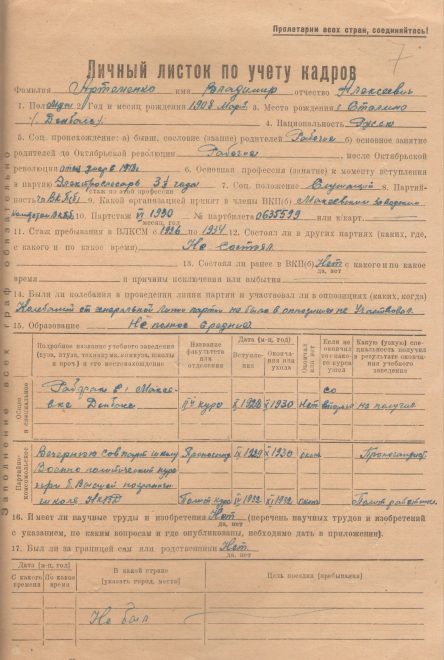 Пролетарии всех стран, соединяйтесь!
7
Личный листок по учету кадров
Фамилия Артеменко имя Владимир отчество Алексеевич
1. Пол муж 2. Год и месяц рождения 1908 март 3. Место рождения г. Сталино
/. Донбасс). 4. Национальность Русск
5. Соц. происхождение: а) бывш. сословие (звание) родителей Рабочие б) основное занятие
родителей до Октябрьской революции Рабочие, после Октябрьской
революции отец умер в 1918 г. 6. Основная профессия (занятие) к моменту вступления
в партию Электрослесарь 3½ года 7. Соц. положение Служащий 8. Партий-
стаж по этой профессии
ность ВКП(б) 9. Какой организацией принят в члены ВКП(б) Макеевским заводским
10. Партстаж VI 1930 № партбилета 0635599 или к/карт.
месяц, год
11. Стаж пребывания в ВЛКСМ с 1926 по 1934 12. Состоял ли в других партиях (каких, где,
с какого и по какое время) Не состоял
13. Состоял ли ранее в ВКП(б) Нет с какого по какое
да, нет
время и причины исключения или выбытия
14. Были ли колебания в проведении линии партии и участвовал ли в оппозициях (каких, когда)
Колебаний от генеральной линии партии не было в оппозициях не участвовал.
15. Образование Не полное среднее
Подробное название учебного заведения (вуза, втуза, техникума, комвуза, школы и проч.) и его местонахождение
Название факультета или отделения
Дата (м-ц, год)
Вступления
Окончания или ухода
Окончил или нет
Если не окончил, то с какого курса ушел
Какую (узкую) специальность получил в результате окончания учебного заведения
Общее и специальное
Рабфак в г. Макеевке Донбасс
II й курс X 1928 X 1930 Нет со второго не получил
Партийно-комсомольское
Вечернюю совпартшколу Пропаганд IX 1929 IX 1930 оконч Пропагандист
Военно политический курс при 2. Высшей пограничн школе НКВД
Политкурс IV 1932 XI 1932 оконч Полит работник
16. Имеет ли научные труды и изобретения Нет (перечень научных трудов и изобретений
да, нет
с указанием, по каким вопросам и где опубликованы, необходимо дать в приложении).
17. Был ли за границей сам или родственники Нет
да, нет
Дата (м-ц, год)
С какого времени
По какое время
В какой стране
(указать город, места)
Цель поездки (пребывания)
Не был
Заполнение всех граф обязательно